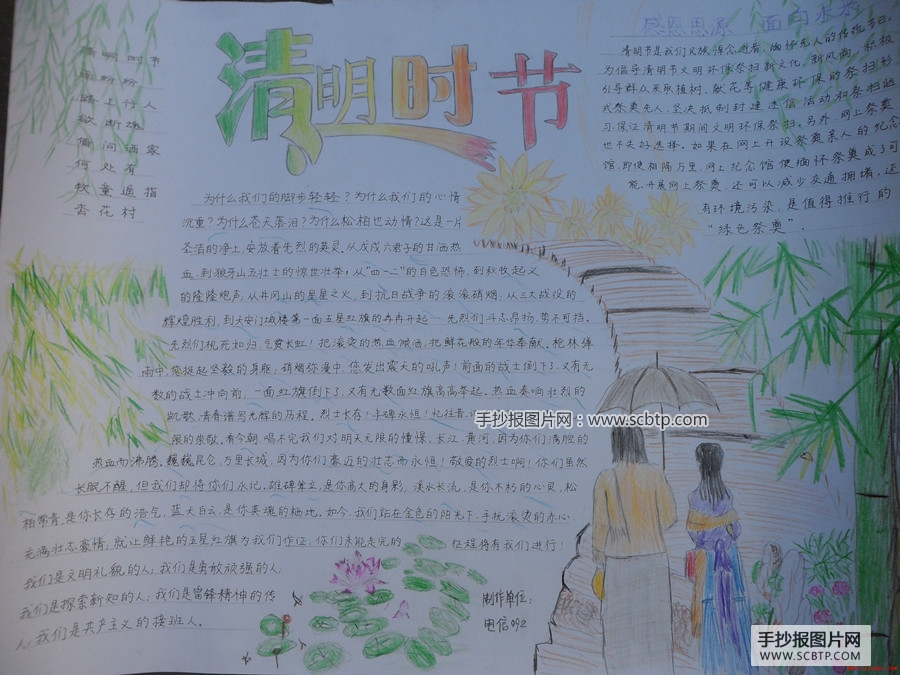 清明时节
清明时节
雨纷纷
路上行人
欲断魂
借问酒家
何处有
牧童遥指
杏花村
感恩思源 面向未来
清明节是我们民族悼念逝者、缅怀先人的传统节日。
为倡导清明节文明环保祭扫新文化、新风尚，积极
引导群众采取植树、献花等健康环保的祭扫形
式祭奠先人，坚决抵制封建迷信活动和祭扫陋
习，保证清明节期间文明环保祭扫。另外，网上祭奠
也不失好选择。如果在网上开设祭奠亲人的纪念
馆，即使相隔万里，网上纪念馆使缅怀祭奠成了可
能，开展网上祭奠，还可以减少交通拥堵，还
有环境污染，是值得推行的
“绿色祭奠”．
为什么我们的脚步轻轻？为什么我们的心情
沉重？为什么苍天落泪？为什么松柏也动情？这是一片
圣洁的净土，安放着先烈的英灵。从戊戌六君子的甘洒热
血，到狼牙山五壮士的惊世壮举；从“四一二”的白色恐怖，到秋收起义
的隆隆炮声；从井冈山的星星之火，到抗日战争的滚滚硝烟；从三大战役的
辉煌胜利，到天安门城楼第一面五星红旗的冉冉升起 先烈们斗志昂扬，势不可挡。
先烈们视死如归，气贯长虹！把滚烫的热血倾洒，把鲜花般的年华奉献。枪林弹
雨中，您挺起坚毅的身躯；硝烟弥漫中，您发出震天的吼声！前面的战士倒下了，又有无
数的战士冲向前，一面红旗倒下了，又有无数面红旗高高举起。热血奏响壮烈的
凯歌，青春谱写光辉的历程。烈士长存！丰碑永恒！忆往昔，
限的崇敬，看今朝，唱不完我们对明天无限的憧憬，长江、黄河，因为你们满腔的
热血而沸腾。巍巍昆仑，万里长城，因为你们豪迈的壮志而永恒！敬爱的烈士啊！你们虽然
长眠不醒，但我们却将你们永记。雄碑耸立，是你高大的身影，溪水长流，是你不朽的心灵，松
柏常青，是你长存的浩气，蓝天白云，是你英魂的栖地。如今，我们站在金色的阳光下，手扶滚烫的赤心，
充满壮志豪情，就让鲜艳的五星红旗为我们作证，你们未能走完的 征程将有我们进行！
我们是文明礼貌的人；我们是勇敢顽强的人
我们是探索新知的人；我们是雷锋精神的传
人；我们是共产主义的接班人．
制作单位：
电信092
手抄报图片网：www.scbtp.com
手抄报图片网
WWW.SCBTP.COM